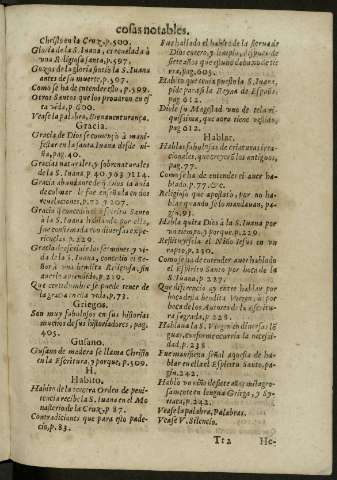 cosas notables.
Christo en la Cruz, p.500.
Gloria de la S. Iuana, es reuelada à
vna Religiosa santa, p.597.
Gozos de la gloria sintiò la S. Iuana
antes de su muerte, p.597.
Como se ha de entender esto, p.599.
Otros Santos que los prouaron en es
ta vida, p.600.
Vease la palabra, Bienauenturança.
Gracia.
Gracia de Dios se començò à mani-
festar en la santa Iuana desde ni-
ña, pag.40.
Gracias naturales, y sobrenaturales
de la S. Iuana, p 40 y 63 y 114.
Gracia
Gracia que
à la S. Iuana hablando por ella,
fue confirmada con diuersas expe-
riencias p.229.
Gracia de
da de la S. Iuana,
à vna bendita Religiosa, sin
auerlo aprendido, p.229.
Que certidumbre se puede tener de
la gracia en esta vida, p.73.
Griegos.
Son muy fabulosos en sus historias
muchos de sus historiadores, pag.
405.
Gusano.
Gusano de madera se llama Christo
en la Escritura, y porque, p.509.
H.
Habito.
Habito de la tercera Orden de peni-
tencia recibe la S. Iuana en el Mo
nasterio de la Cruz, p 87.
Contradiciones que para esto pade-
ciò, p.83.
Fue hallado el habito de la sierua de
Dios entero, y limpio, despues de
siete años que estuuo debaxo de tie
rra, pag.605.
Habito que tenia puesto la S. Iuana,
pide para si la Reyna de España.
pag 612.
Diole su Magestad vno de tela ri-
quissima, que aora tiene vestido,
pag 612.
Hablar.
Hablas fabulosas de criaturas irra-
cionales, que creyerõ los antiguos,
pag.77.
Como se ha de entender el auer ha-
blado, p.77.&c.
Religiosa que apostatò, por no ha-
blar quando se lo mandauan, pa-
gin.91.
Habla quita Dios à la S. Iuana por
vn tiempo, y porque, p.229.
Restituyesela el Niño Iesus en vn
rapto, p.230.
Como se ha de entender auer hablado
el Espiritu Santo por boca de la
S. Iuana, p.237.
Que diferencia ay entre hablar por
boca de la bendita Virgen, ò por
boca de los Autores de la Escritu-
ra sagrada, p.238.
Hablaua la S. Virgen en diuersas lẽ
guas, conforme corria la necessi-
dad, p.238
Fue marauillosa señal aquella de ha-
blar en ella el Espiritu Santo, pa-
gin.242.
Hablo vn niño de siete años milagro-
samente en lengua Griega, y Sy-
riaca, pag.242.
Vease la palabra, Palabras.
Vease V. Silencio.
Tt 2 He-